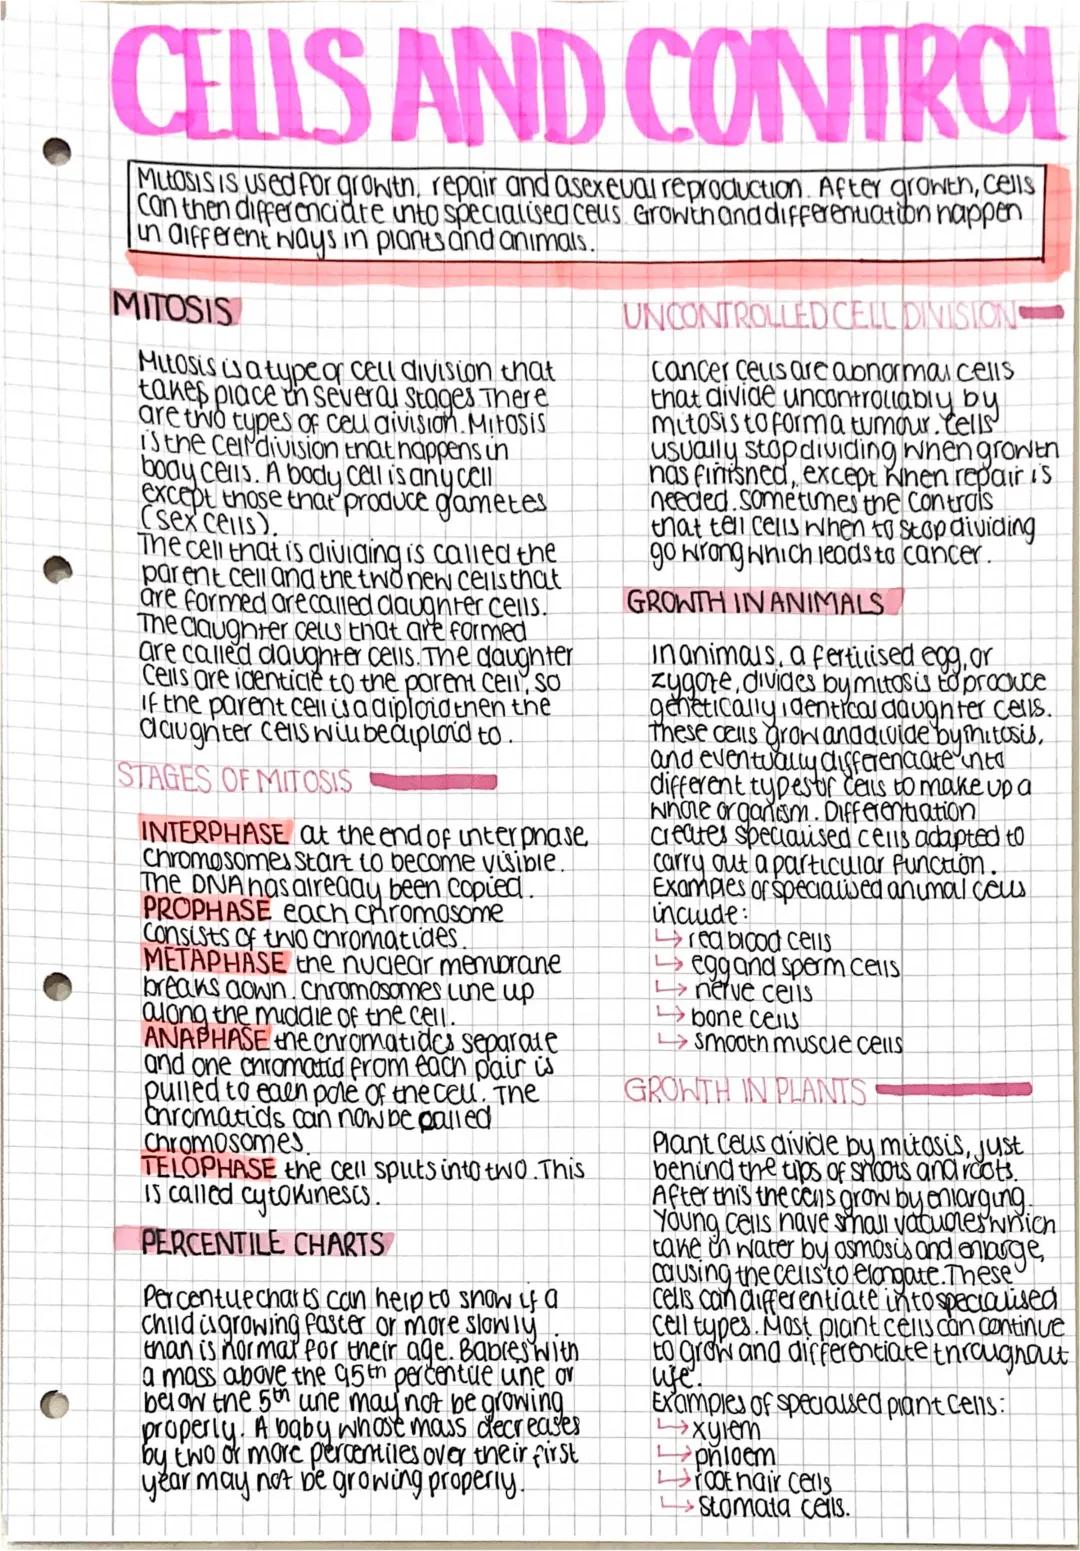 CELLS AND CONTROL
Mitosis is used for growth, repair and asexeual reproduction. After growth, cells
can then differenciate into specialised cells. Growth and differentiation happen
in different ways in plants and animals.
MITOSIS
Mitosis is a type of cell division that
takes place in several stages. There
are two types of cell division. Mitosis
is the cell division that happens in
body cells. A body cell is any cell
except those that produce gametes
(sex cells).
The cell that is dividing is called the
parent cell and the two new cells that
are formed are called daughter cells.
The daughter cells that are formed
are called daughter cells. The daughter
cells are identicle to the parent cell, so
if the parent cell is a diploid then the
daughter cells will be diploid to.
STAGES OF MITOSIS
INTERPHASE at the end of interphase
chromosomes start to become visible.
The DNA has already been copied.
PROPHASE each chromosome
consists of two chromatides.
METAPHASE the nuclear membrane
breaks down. Chromosomes line up
along the middle of the cell.
ANAPHASE the chromatides separate
and one chromatid from each pair is
pulled to each pole of the cell. The
chromatids can now be called
chromosomes.
TELOPHASE the cell splits into two. This
is called cytokinesis.
PERCENTILE CHARTS
Percentile charts can help to show if a
child is growing faster or more slowly
than is normal for their age. Babies with
a mass above the 95th percentile line or
below the 5th line may not be growing
properly. A baby whose mass decreases
by two or more percentiles over their first
year may not be growing properly.
UNCONTROLLED CELL DIVISION
Cancer cells are abnormal cells
that divide uncontrollably by
mitosis to form a tumour. Cells
usually stop dividing when growth
has finished, except when repair is
needed. Sometimes the controls
that tell cells when to stop dividing
go wrong which leads to cancer.
GROWTH IN ANIMALS
In animals, a fertilised egg, or
zygote, divides by mitosis to produce
genetically identical daughter cells.
These cells grow and divide by mitosis,
and eventually differenciate into
different types of cells to make up a
whole organism. Differentiation
creates specialised cells adapted to
carry out a particular function.
Examples of specialised animal cells
include:
↳ red blood cells
↳ egg and sperm cells
↳ nerve cells
↳ bone cells
↳ smooth muscle cells
GROWTH IN PLANTS
Plant cells divide by mitosis, just
behind the tips of shoots and roots.
After this the cells grow by enlarging.
Young cells have small vacuoles which
take in water by osmosis and enlarge,
causing the cells to elongate. These
cells can differentiate into specialised
cell types. Most plant cells can continue
to grow and differentiate throughout
life.
Examples of specialised plant cells:
↳ xylem
↳ phloem
↳ root hair cells
↳ stomata cells.